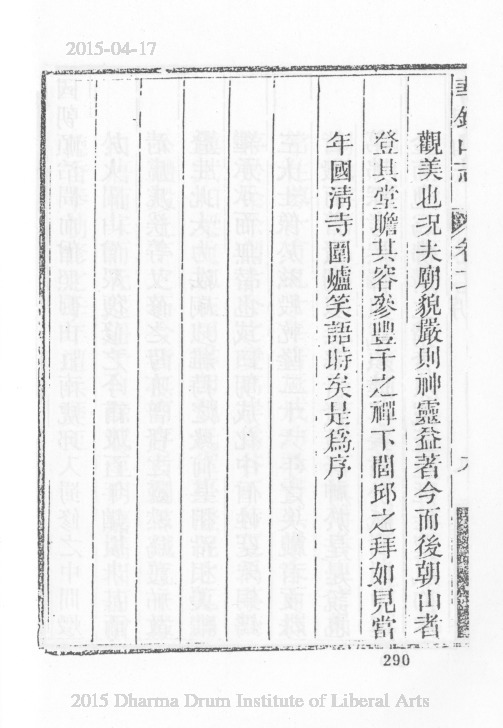 2015-04-17
觀美也况夫廟貌嚴則神靈益著今而後朝山者
登其堂瞻其容參豐干之禪下閭邱之拜如見當
年國淸寺圍爐笑語時矣是爲序
290
2015 Dharma Drum Institute of Liberal Arts